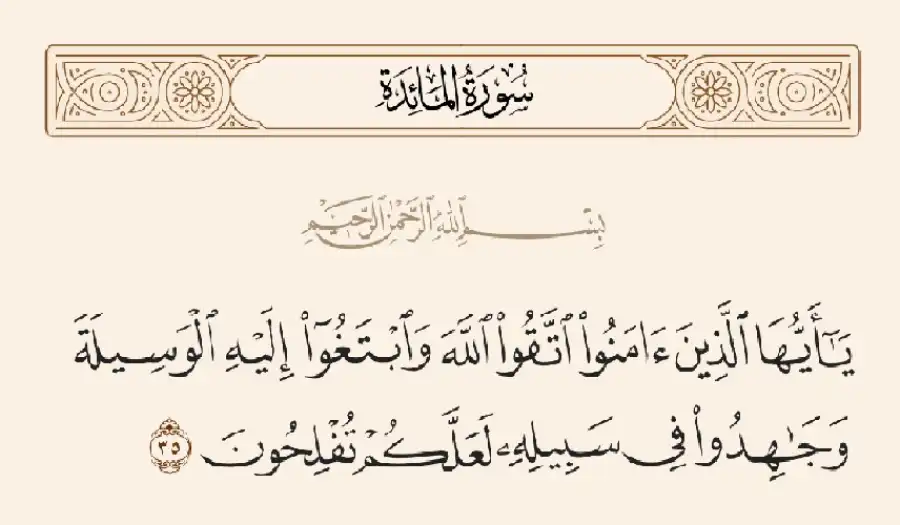 سُورَةُ المَائِدَةِ
بِسْمِ ٱللَّهِ ٱلرَّحْمَٰنِ ٱلرَّحِيمِ
يَـٰٓأَيُّهَا ٱلَّذِينَ ءَامَنُوا۟ ٱتَّقُوا۟ ٱللَّهَ وَٱبْتَغُوٓا۟ إِلَيْهِ ٱلْوَسِيلَةَ
وَجَـٰهِدُوا۟ فِى سَبِيلِهِۦ لَعَلَّكُمْ تُفْلِحُونَ ٣٥